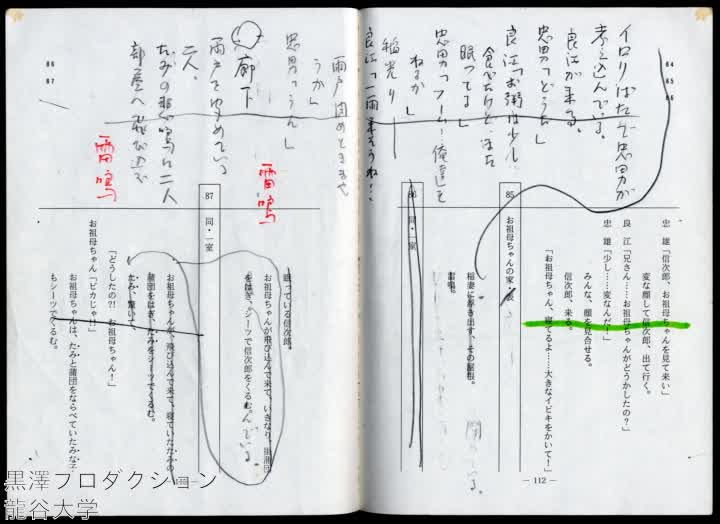 84
85
86
イロリばたで忠男が
考え込んでいる。
良江が来る。
忠男「どうだ」
良江「お粥は少し
食べたけど、また
眠ってる」
忠男「フーム…俺達も
ねるか」
稲光り
良江「一雨来そうね…
雨戸閉めときま
うか」
忠男「うん」
廊下
雨戸を
二人。
たみの悲鳴に二人
部屋へ飛び込む
雷鳴
雷鳴
86
87
忠 雄「信次郎、お祖母ちゃんを見て来い」
変な顔して信次郎、出て行く。
良 江「兄さん……お祖母ちゃんがどうかしたの?」
忠 雄「少し……変なんだ!」
みんな、顔を見合せる。
信次郎、来る。
「お祖母ちゃん、寝てるよ……大きなイビキをかいて!」
85 お祖母ちゃんの家・表
稲妻に浮き出す、その屋根。
雷鳴。
86 同・一室
— 112 —
眠っている信次郎。
お祖母ちゃんが飛び込んで来て、いきなり、掛蒲団
をはぎ、シーツで信次郎をくるむ。
んでいる。
87 同・一室
お祖母ちゃんが、飛び込んで来て、寝ていたたみの
蒲団をはぎ、たみをシーツでくるむ。
たみ、驚いて、
「どうしたの!? お祖母ちゃん!」
お祖母ちゃん「ピカじゃ!!」
お祖母ちゃんは、たみと蒲団をならべていたみな子
もシーツでくるむ。
黒澤プロダクション
龍谷大学